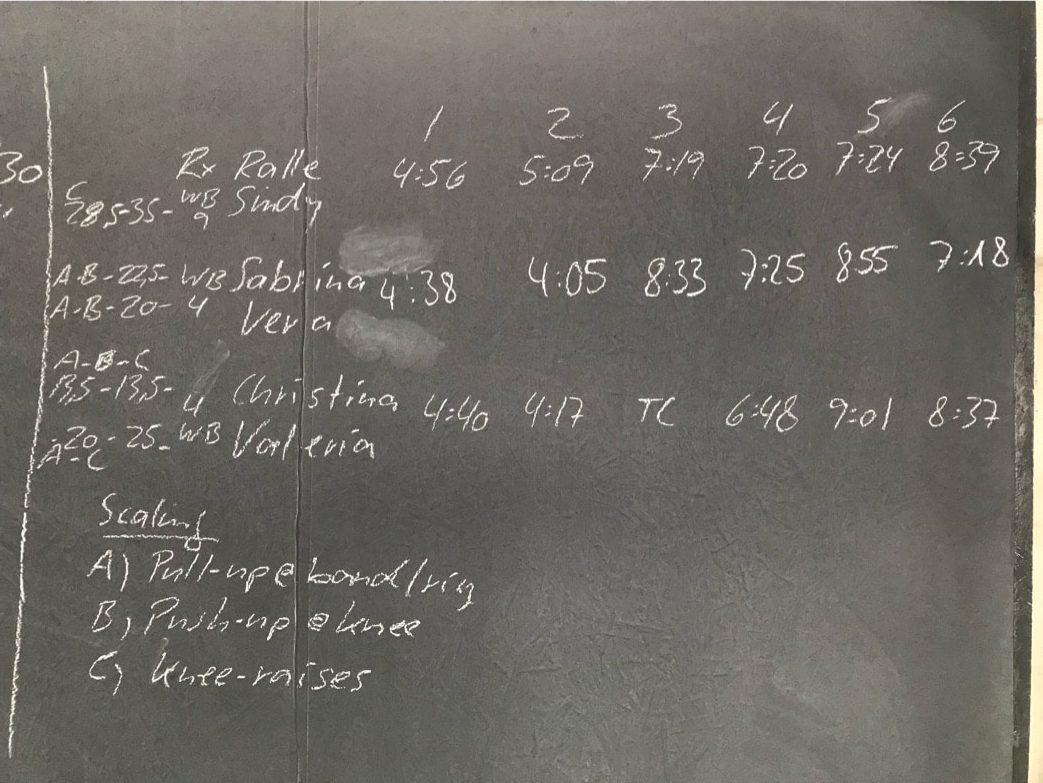 1 2 3 4 5 6
30 Rx Ralle 4:56 5:09 7:19 7:20 7:24 8:39
C
WB Sindy
9
A-B-22,5- WB Sabrina 4:38 4:05 8:33 7:25 8:55 7:18
A-B-20- 4 Vera
A-B-C
13,5-13,5- 4 Christina 4:40 4:17 TC 6:48 9:01 8:37
-20-25-WB Valeria
A-C
Scaling
A) Pull-up@band/ring
B) Push-up@knee
C) knee-raises